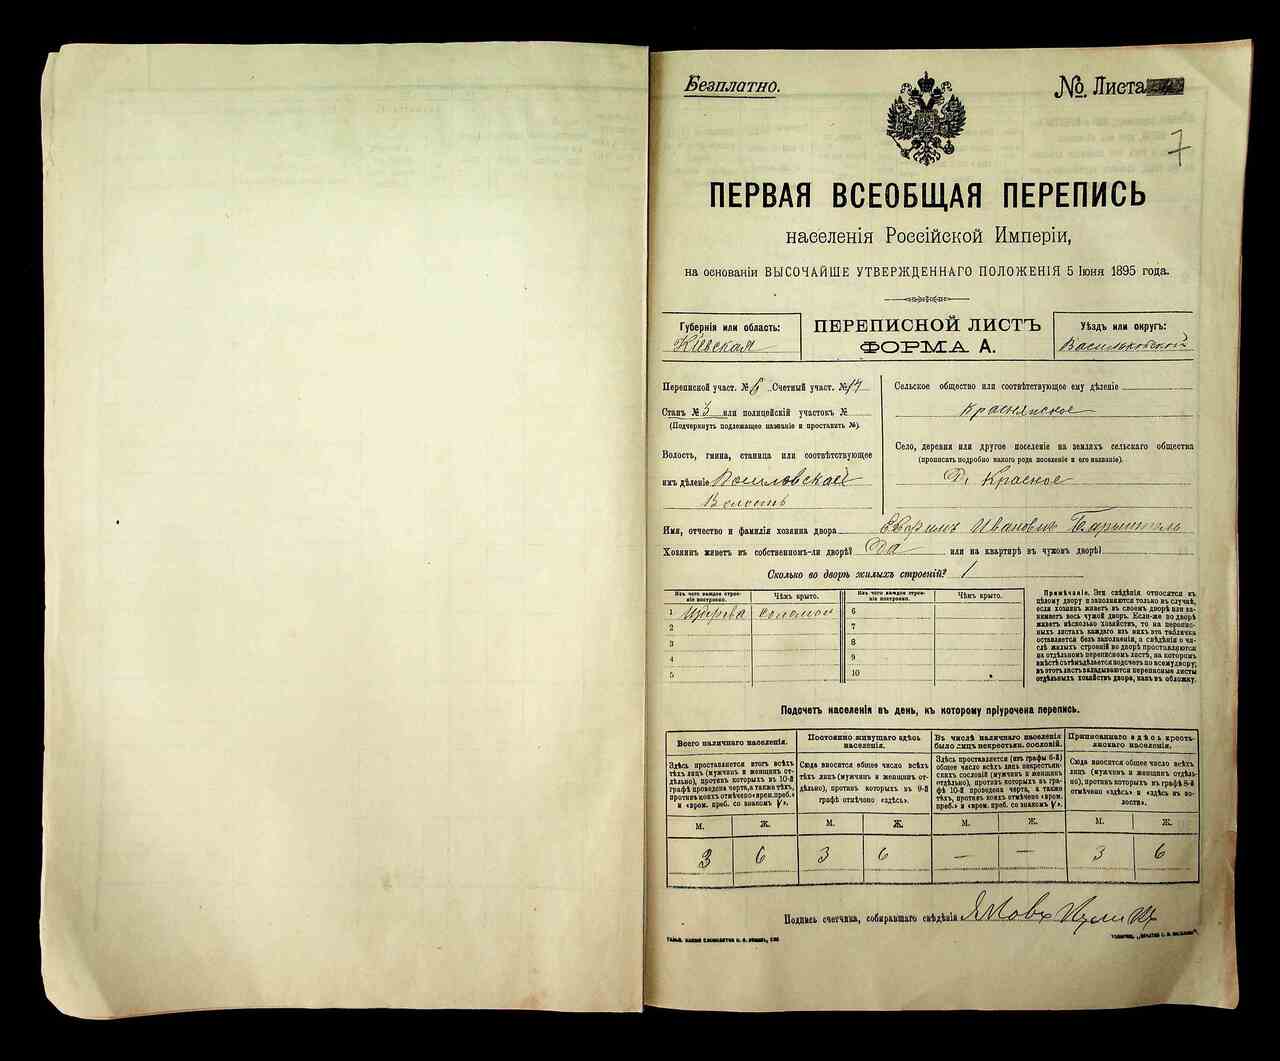 Безплатно.
№ Листа
7
ПЕРВАЯ ВСЕОБЩАЯ ПЕРЕПИСЬ
населенія Россійской Имперіи,
на основаніи ВЫСОЧАЙШЕ УТВЕРЖДЕННАГО ПОЛОЖЕНІЯ 5 Іюня 1895 года.
Губернія или область:
Кіевская
ПЕРЕПИСНОЙ ЛИСТЪ
ФОРМА А.
Уѣздъ или округъ:
Васильковской
Переписной участ. № 6 Счетный участ. № 14
Станъ № 3 или полицейскій участокъ №
(Подчеркнуть подлежащее названіе и проставить №).
Волость, гмина, станица или соотвѣтствующее
имъ дѣленіе
Волость
Сельское общество или соотвѣтствующее ему дѣленіе
Краснянское
Село, деревня или другое поселеніе на земляхъ сельскаго общества
(прописать подробно какого рода поселеніе и его названіе).
Д. Красное
Имя, отчество и фамилія хозяина двора Ефимъ Ивановъ
Хозяинъ живетъ въ собственномъ-ли дворѣ? Да или на квартирѣ въ чужомъ дворѣ?
Сколько во дворѣ жилыхъ строеній? 1
Изъ чего каждое строе-
ніе построено.
Чѣмъ крыто.
Изъ чего каждое строе-
ніе построено.
Чѣмъ крыто.
1 соломой
2
3
4
5
6
7
8
9
10
Примѣчаніе. Эти свѣдѣнія относятся къ
цѣлому двору и заполняются только въ случаѣ,
если хозяинъ живетъ въ своемъ дворѣ или за-
нимаетъ весь чужой дворъ. Если-же во дворѣ
живетъ нѣсколько хозяйствъ, то на перепис-
ныхъ листахъ каждаго изъ нихъ эта табличка
оставляется безъ заполненія, а свѣдѣнія о чи-
слѣ жилыхъ строеній во дворѣ проставляются
на отдѣльномъ переписномъ листѣ, на которомъ
вмѣстѣ съ тѣмъ дѣлается подсчетъ по всему двору;
въ этотъ листъ вкладываются переписные листы
отдѣльныхъ хозяйствъ двора, какъ въ обложку.
Подсчетъ населенія въ день, къ которому пріурочена перепись.
Всего наличнаго населенія.
Здѣсь проставляется итогъ всѣхъ
тѣхъ лицъ (мужчинъ и женщинъ от-
дѣльно), противъ которыхъ въ 10-й
графѣ проведена черта, а также тѣхъ,
противъ коихъ отмѣчено «врем. преб.»
и «врем. преб. со знакомъ V».
Постоянно живущаго здѣсь
населенія.
Сюда вносится общее число всѣхъ
тѣхъ лицъ (мужчинъ и женщинъ от-
дѣльно), противъ которыхъ въ 9-й
графѣ отмѣчено «здѣсь».
Въ числѣ наличнаго населенія
было лицъ некрестьян. сословій.
Здѣсь проставляется (изъ графы 6-й)
общее число всѣхъ лицъ некрестьян-
скихъ сословій (мужчинъ и женщинъ
отдѣльно), противъ которыхъ въ гра-
фѣ 10-й проведена черта, а также
тѣхъ, противъ коихъ отмѣчено «врем.
преб.» и «врем. преб. со знакомъ V».
Приписаннаго здѣсь кресть-
янскаго населенія.
Сюда вносится общее число всѣхъ
лицъ (мужчинъ и женщинъ отдѣль-
но), противъ которыхъ въ графѣ 8-й
отмѣчено «здѣсь» и «здѣсь въ во-
лости».
М. Ж. М. Ж. М. Ж. М. Ж.
3 6 3 6 — — 3 6
Подпись счетчика, собиравшаго свѣдѣнія Яковъ